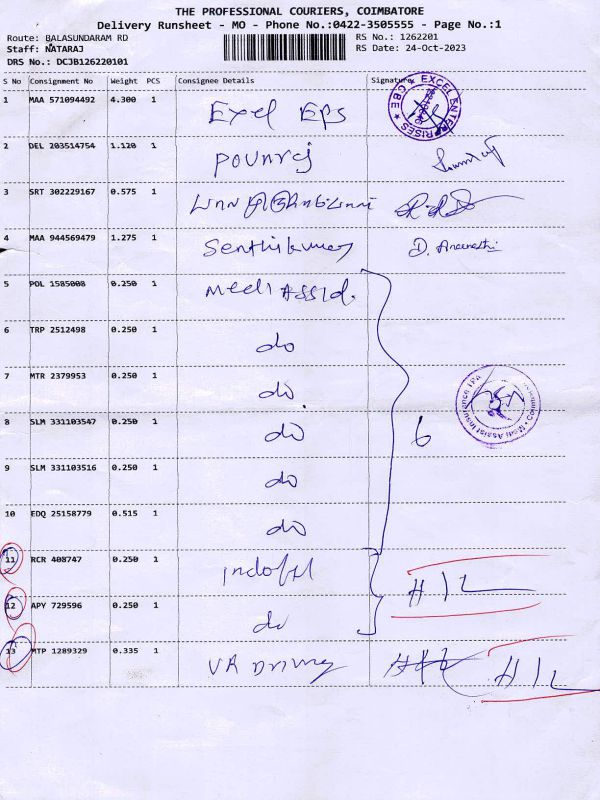 THE PROFESSIONAL COURIERS, COIMBATORE
Delivery Runsheet - MO - Phone No.:0422-3505555 - Page No.:1
Route: BALASUNDARAM RD
RS No.: 1262201
Staff: NATARAJ
RS Date: 24-Oct-2023
DRS No.: DCJB126220101
S No Consignment No Weight PCS Consignee Details Signature
1 MAA 571094492 4.300 1 Excel Eps
EXCEL ENTERPRISES ★ CBE ★
2 DEL 203514754 1.120 1 Pounraj
3 SRT 302229167 0.575 1
4 MAA 944569479 1.275 1 Senthilkumar D.
5 POL 1585008 0.250 1 Medi Assid.
6 TRP 2512498 0.250 1 do
7 MTR 2379953 0.250 1 do
8 SLM 331103547 0.250 1 do 6
Medi Assist Insurance TPA
9 SLM 331103516 0.250 1 do
10 EDQ 25158779 0.515 1 do
11 RCR 408747 0.250 1 H/L
12 APY 729596 0.250 1 do
13 MTP 1289329 0.335 1 VA H/L